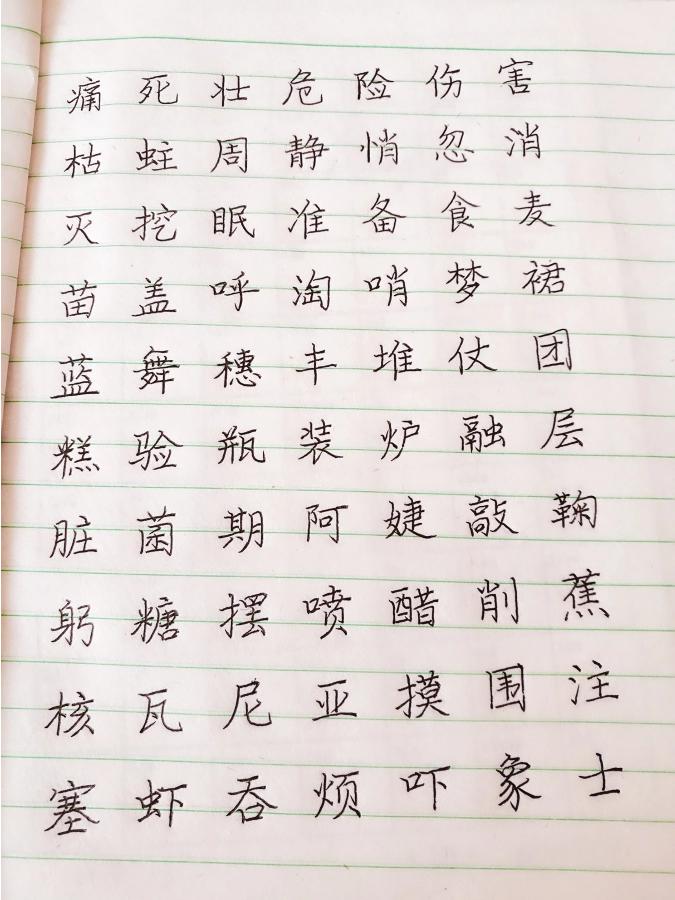 痛 死 壮 危 险 伤 害
枯 蛀 周 静 悄 忽 消
灭 挖 眠 准 备 食 麦
苗 盖 呼 淘 哨 梦 裙
蓝 舞 穗 丰 堆 仗 团
糕 验 瓶 装 炉 融 层
脏 菌 期 阿 婕 敲 鞠
躬 糖 摆 喷 醋 削 蕉
核 瓦 尼 亚 摸 围 注
塞 虾 吞 烦 吓 象 士